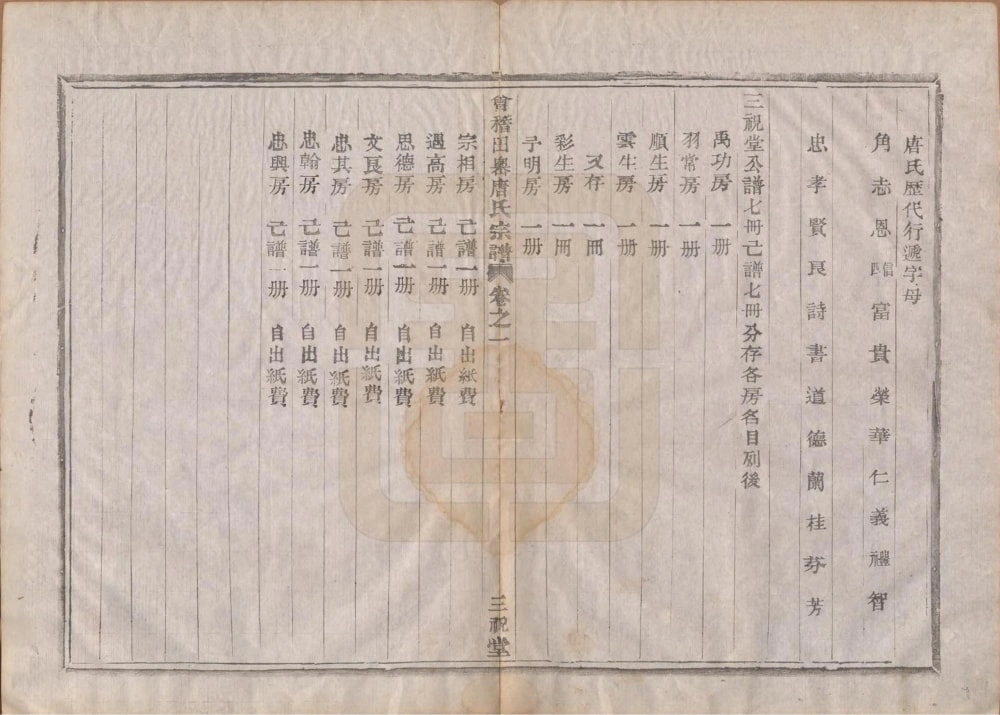 唐氏歷代行遞字母
角志恩臨富貴榮華仁義禮智
忠孝賢良詩書道德蘭桂芬芳
三祝堂公譜七冊己譜七冊分存各房名目列後
禹功房 一册
羽常房 一册
順生房 一册
雲生房 一册
又存 一冊
彩生房 一冊
予明房 一册
會稽田𡋟唐氏宗譜 卷之一 三祝堂
宗相房 己譜一册 自出紙費
遇高房 己譜一册 自出紙費
思德房 己譜一册 自出紙費
文良房 己譜一册 自出紙費
忠其房 己譜一册 自出紙費
忠翰房 己譜一册 自出紙費
忠興房 己譜一册 自出紙費